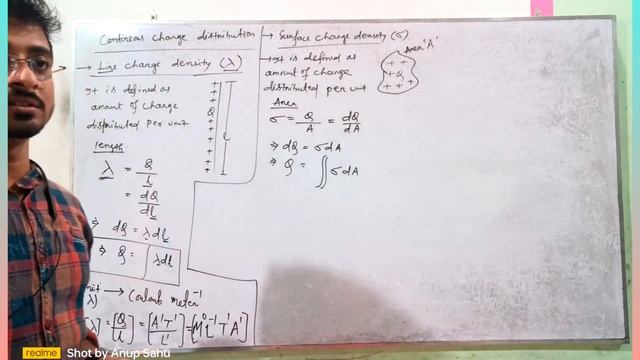 Continous charge distribution
→ Line charge density (λ)
It is defined as
amount of charge
distributed per unit
length
λ = Q/l
= dQ/dl
⇒ dQ = λdl
⇒ Q = ∫λdl
→ Coulomb meter⁻¹
λ)
[λ] = [Q/l] = [A¹T¹/L¹] = [M⁰L⁻¹T¹A¹]
+ + + Q + + + + + l
→ Surface charge density (σ)
→ It is defined as
amount of charge
distributed per unit
Area
σ = Q/A = dQ/dA
⇒ dQ = σdA
⇒ Q = ∬σdA
Area 'A'
+ +
+ Q
+ + +
realme Shot by Anup Sahu